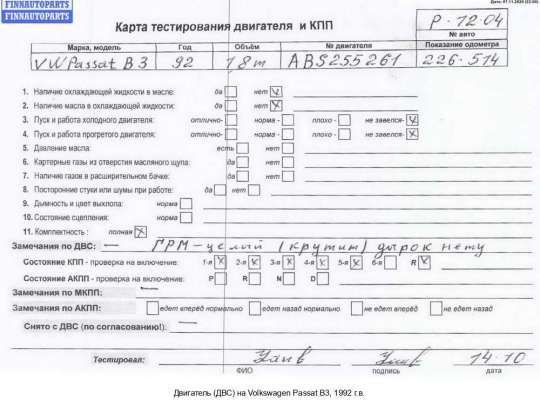 FINNAUTOPARTS
FINNAUTOPARTS
Карта тестирования двигателя и КПП
P-1204
№ авто
Марка, модель Год Объём № двигателя Показание одометра
VW Passat B3 92 1 8 m ABS255261 226·514
1. Наличие охлаждающей жидкости в масле: да нет X
2. Наличие масла в охлаждающей жидкости: да нет X
3. Пуск и работа холодного двигателя: отлично- норма - плохо - не завелся- X
4. Пуск и работа прогретого двигателя: отлично- норма- плохо - не завелся- X
5. Давление масла: есть нет
6. Картерные газы из отверстия масляного щупа: да нет
7. Наличие газов в расширительном бачке: да нет
8. Посторонние стуки или шумы при работе: да нет
9. Дымность и цвет выхлопа: норма
10. Состояние сцепления: норма
11. Комплектность : полная X
Замечания по ДВС: — ГРМ - целый (крутит) дырок нету
Состояние КПП - проверка на включение: 1-я X 2-я X 3-я X 4-я X 5-я X 6-я R X
Состояние АКПП - проверка на включение: P R N D
Замечания по МКПП: —
Замечания по АКПП: едет вперёд нормально едет назад нормально не едет вперёд не едет назад
Снято с ДВС (по согласованию!): —
Тестировал: 14·10
ФИО подпись дата
Двигатель (ДВС) на Volkswagen Passat B3, 1992 г.в.